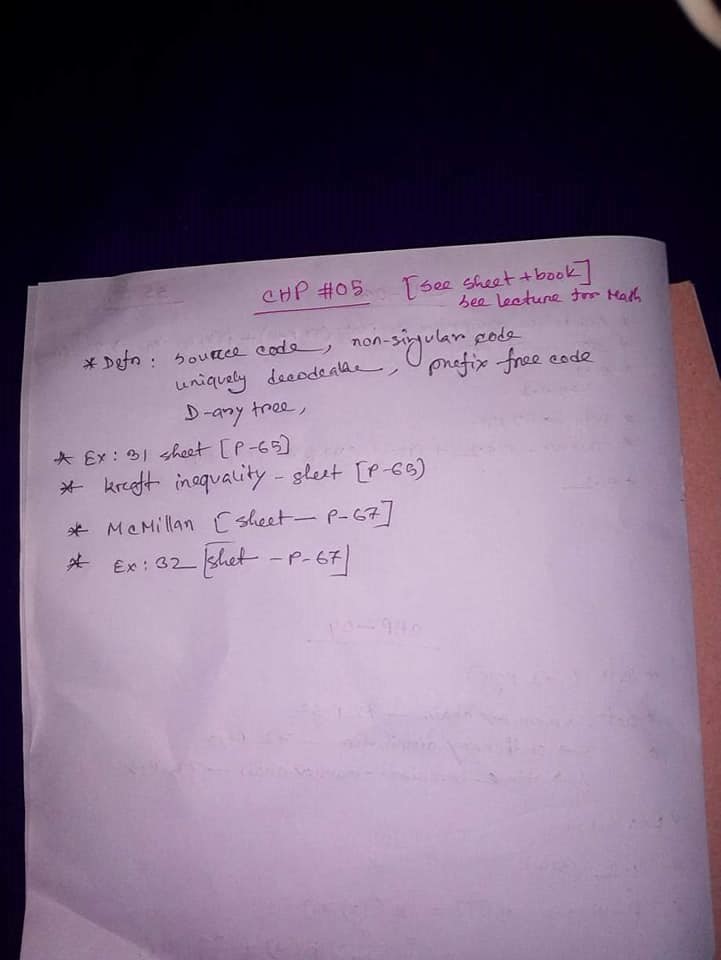 CHP #05 [See sheet + book]
See lecture for Math
* Defn : source code, non-singular code
uniquely decodeable, prefix free code
D-ary tree,
* Ex : 31 sheet [P-65]
* kraft inequality - sheet [P-65)
* McMillan [sheet - P-67]
* Ex : 32 [shet - P-67]